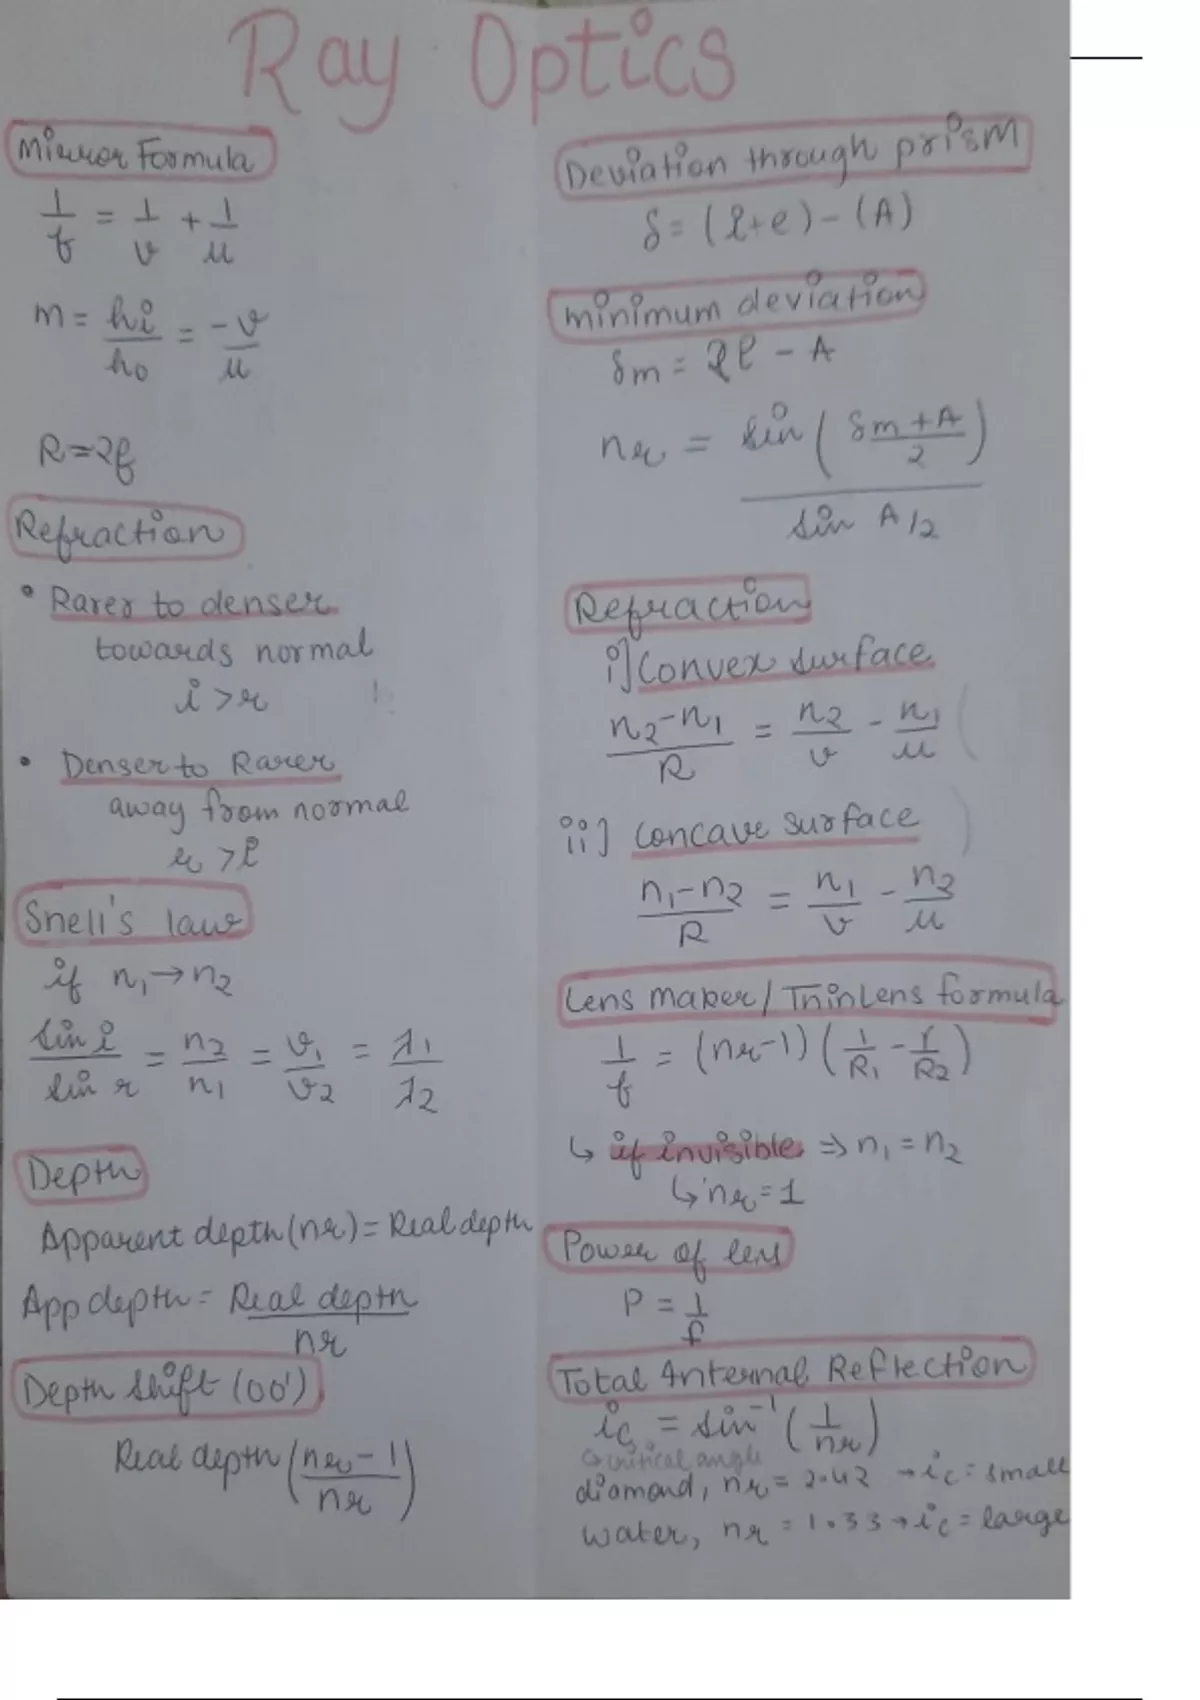 Ray Optics
Mirror Formula
1/f = 1/v + 1/u
m = hi/ho = -v/u
R=2f
Refraction
• Rarer to denser
towards normal
i > r
• Denser to Rarer
away from normal
r > i
Snell's law
if n₁→n₂
sin i/sin r = n₂/n₁ = v₁/v₂ = λ₁/λ₂
Depth
Apparent depth (nr) = Real depth
App depth = Real depth/nr
Depth shift (OO')
Real depth (nr - 1/nr)
Deviation through prism
δ = (i+e) - (A)
minimum deviation
δm = 2i - A
nr = sin (δm + A/2)/sin A/2
Refraction
i] Convex surface
n₂-n₁/R = n₂/v - n₁/u
ii] Concave surface
n₁-n₂/R = n₁/v - n₂/u
Lens maker / Thin Lens formula
1/f = (nr-1) (1/R₁ - 1/R₂)
↳ if invisible ⇒ n₁ = n₂
↳ nr = 1
Power of lens
P = 1/f
Total Internal Reflection
ic = sin⁻¹ (1/nr)
↳ critical angle
diamond, nr = 2.42 → ic = small
water, nr = 1.33 → ic = large